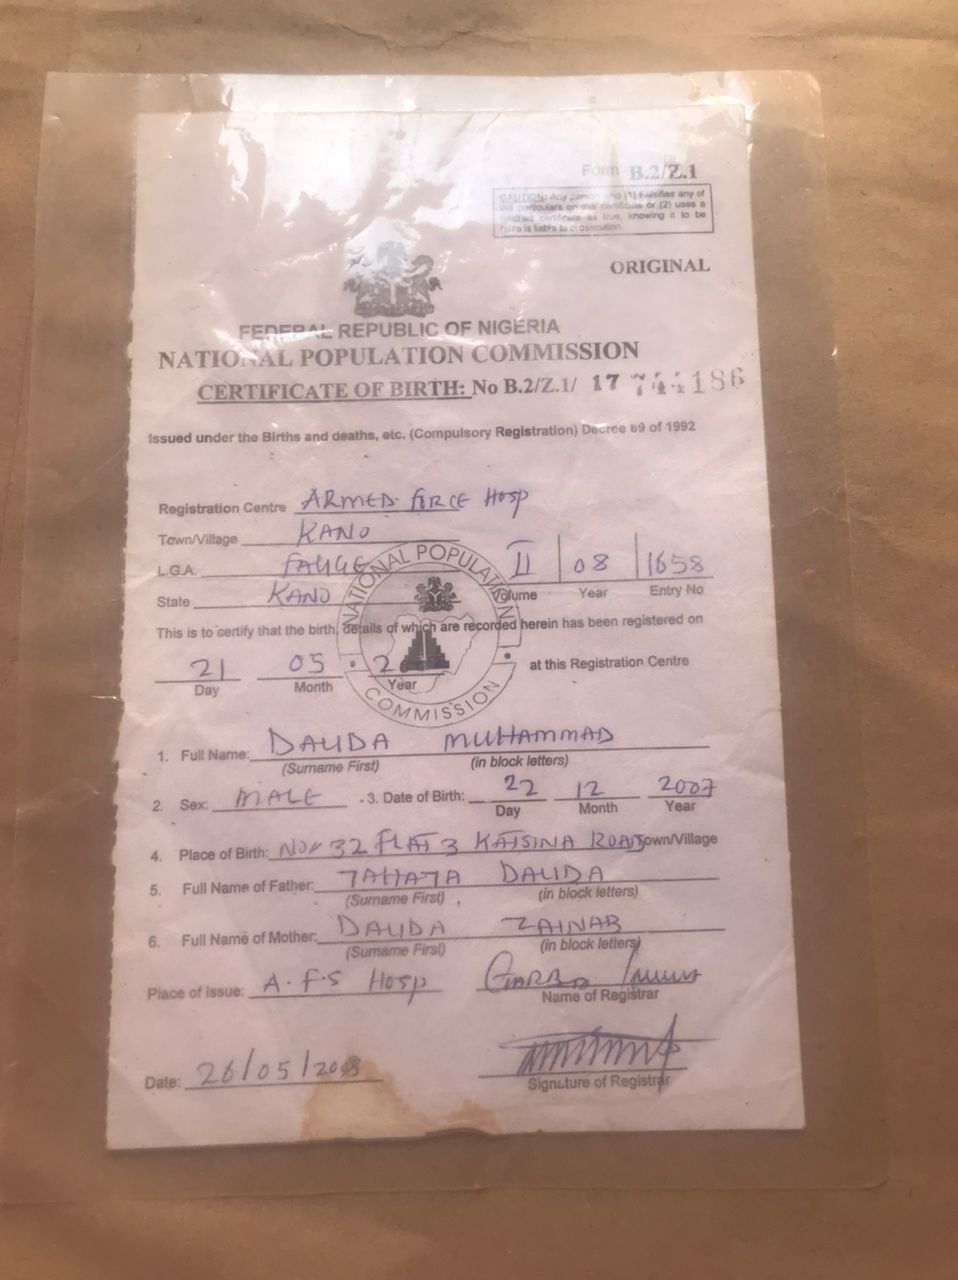 Form B.2/Z.1
CAUTION: Any person who (1) Falsifies any of
the particulars on this certificate or (2) uses a
falsified certificate as true, knowing it to be
false is liable to prosecution.
ORIGINAL
FEDERAL REPUBLIC OF NIGERIA
NATIONAL POPULATION COMMISSION
CERTIFICATE OF BIRTH: No B.2/Z.1/ 17 744186
Issued under the Births and deaths, etc. (Compulsory Registration) Decree 69 of 1992
Registration Centre ARMED FORCE HOSP
Town/Village KANO
L.G.A. FAGGE II 08 1658
State KANO Volume Year Entry No
NATIONAL POPULATION COMMISSION
This is to certify that the birth, details of which are recorded herein has been registered on
21 05 2 at this Registration Centre
Day Month Year
1. Full Name: DAUDA MUHAMMAD
(Surname First) (in block letters)
2. Sex: MALE 3. Date of Birth: 22 12 2007
Day Month Year
4. Place of Birth: NO/ 32 FLAT 3 KATSINA ROAD Town/Village
5. Full Name of Father: DAUDA
(Surname First) (in block letters)
6. Full Name of Mother: DAUDA ZAINAB
(Surname First) (in block letters)
Place of Issue: A.F.S HOSP GARBA
Name of Registrar
Date: 26/05/2008
Signature of Registrar